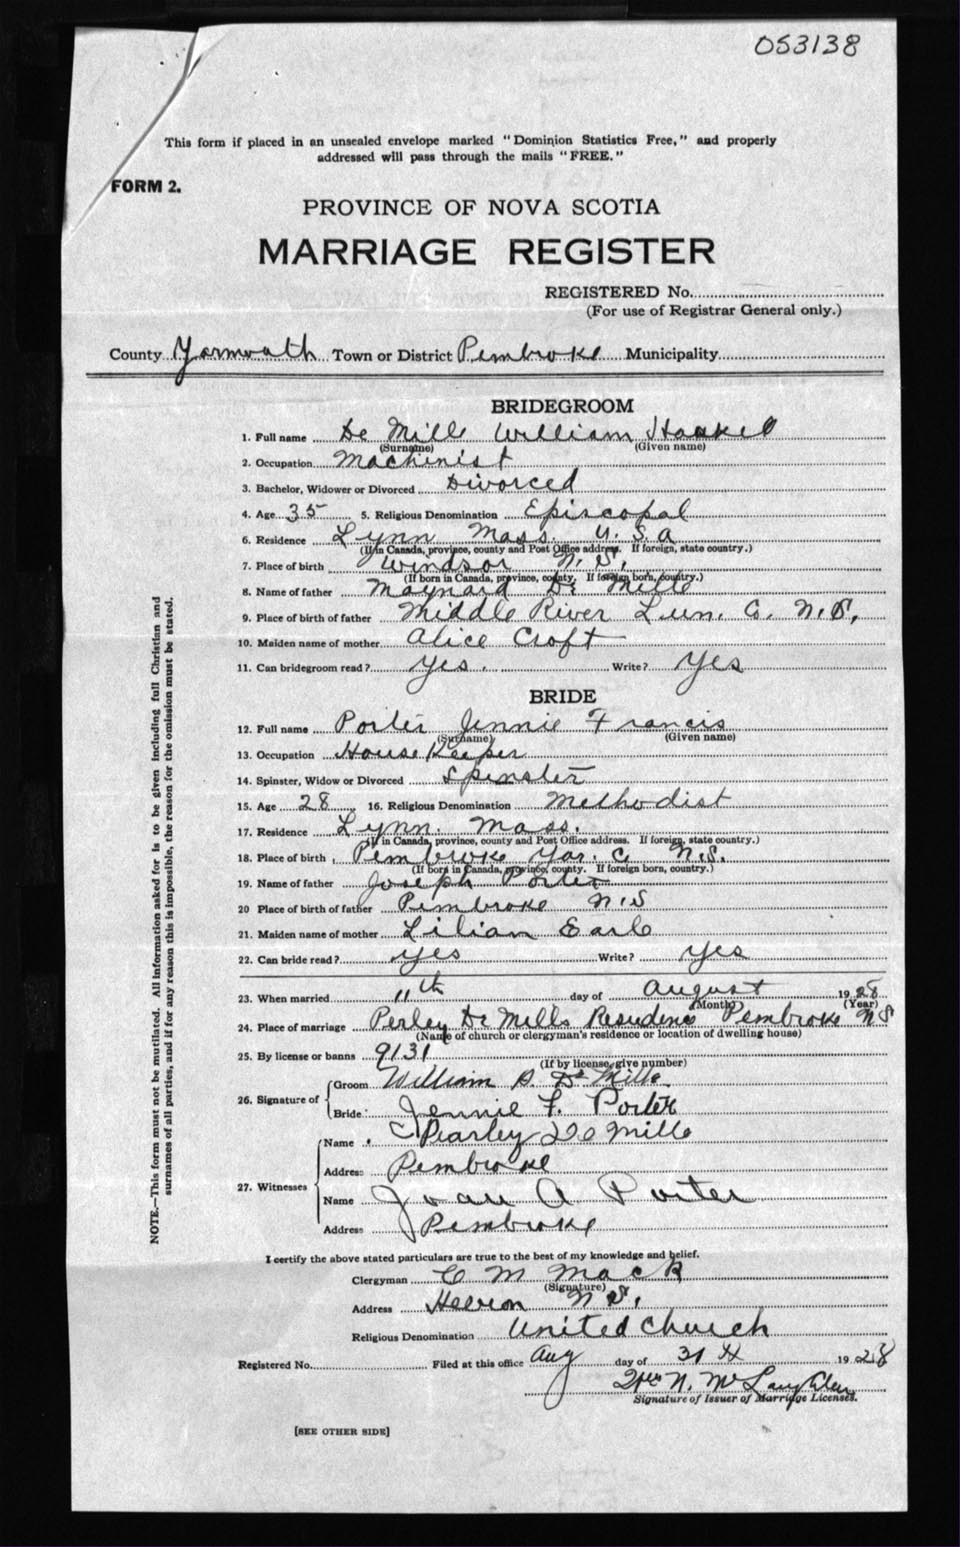 053138
This form if placed in an unsealed envelope marked "Dominion Statistics Free," and properly
addressed will pass through the mails "FREE."
FORM 2.
PROVINCE OF NOVA SCOTIA
MARRIAGE REGISTER
REGISTERED No.
(For use of Registrar General only.)
County Yarmouth Town or District Pembroke Municipality
BRIDEGROOM
1. Full name De Mille William
(Surname) (Given name)
2. Occupation Machinist
3. Bachelor, Widower or Divorced Divorced
4. Age 35 5. Religious Denomination Episcopal
6. Residence Lynn Mass. U.S.A
(If in Canada, province, county and Post Office address. If foreign, state country.)
7. Place of birth Windsor N.S.
(If born in Canada, province, county. If foreign born, country.)
8. Name of father Maynard De Mille
9. Place of birth of father Middle River Lun. Co. N.S.
10. Maiden name of mother Alice Croft
11. Can bridegroom read? yes. Write? Yes
BRIDE
12. Full name Porter Jennie Francis
(Surname) (Given name)
13. Occupation House Keeper
14. Spinster, Widow or Divorced Spinster
15. Age 28 16. Religious Denomination Methodist
17. Residence Lynn. Mass.
(If in Canada, province, county and Post Office address. If foreign, state country.)
18. Place of birth Pembroke Yar. C N.S.
(If born in Canada, province, county. If foreign born, country.)
19. Name of father Joseph Porter
20 Place of birth of father Pembroke N.S
21. Maiden name of mother Lilian Earle
22. Can bride read? yes Write? yes
23. When married 11th day of August 1928
(Month) (Year)
24. Place of marriage Perley De Mills Residence Pembroke NS
(Name of church or clergyman's residence or location of dwelling house)
25. By license or banns 9131
(If by license, give number)
26. Signature of Groom William De Mille
Bride Jennie F. Porter
27. Witnesses Name Pearley De Mille
Address Pembroke
Name Joan A Porter
Address Pembroke
I certify the above stated particulars are true to the best of my knowledge and belief.
Clergyman C M Mack
(Signature)
Address Hebron N S.
Religious Denomination United Church
Registered No. Filed at this office Aug day of 31st 1928
N. McLaughlin
Signature of Issuer of Marriage Licenses.
[SEE OTHER SIDE]
NOTE.—This form must not be mutilated. All information asked for is to be given including full Christian and
surnames of all parties, and if for any reason this is impossible, the reason for the omission must be stated.